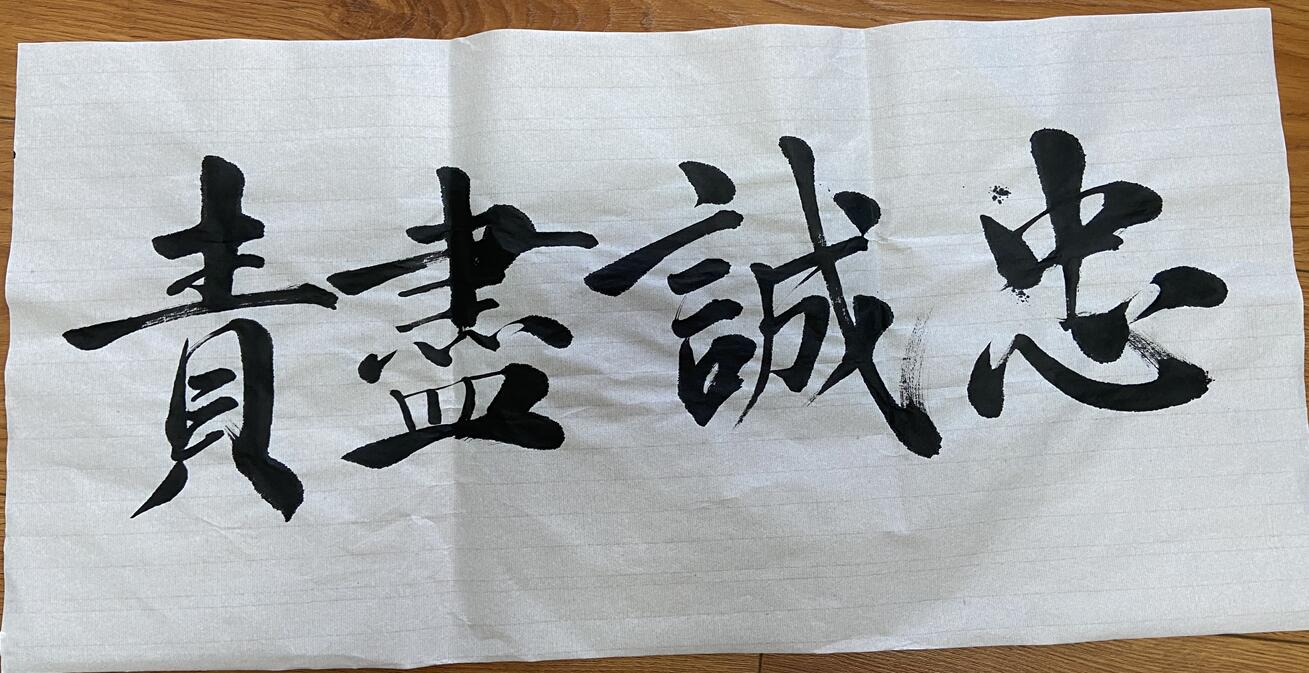 忠誠盡責